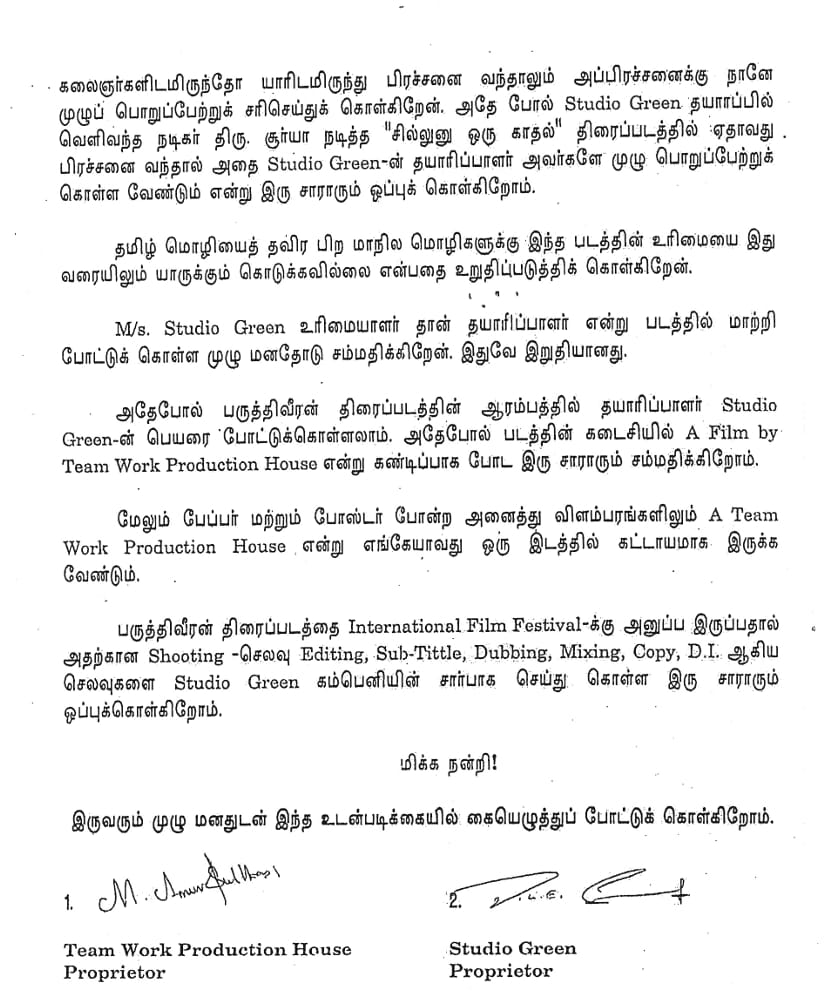 கலைஞர்களிடமிருந்தோ யாரிடமிருந்து பிரச்சனை வந்தாலும் அப்பிரச்சனைக்கு நானே
முழுப் பொறுப்பேற்றுக் சரிசெய்துக் கொள்கிறேன். அதே போல் Studio Green தயாரப்பில்
வெளிவந்த நடிகர் திரு. சூர்யா நடித்த "சில்லுனு ஒரு காதல்" திரைப்படத்தில் ஏதாவது
பிரச்சனை வந்தால் அதை Studio Green-ன் தயாரிப்பாளர் அவர்களே முழு பொறுப்பேற்றுக்
கொள்ள வேண்டும் என்று இரு சாராரும் ஒப்புக் கொள்கிறோம்.
தமிழ் மொழியைத் தவிர பிற மாநில மொழிகளுக்கு இந்த படத்தின் உரிமையை இது
வரையிலும் யாருக்கும் கொடுக்கவில்லை என்பதை உறுதிப்படுத்திக் கொள்கிறேன்.
M/s. Studio Green உரிமையாளர் தான் தயாரிப்பாளர் என்று படத்தில் மாற்றி
போட்டுக் கொள்ள முழு மனதோடு சம்மதிக்கிறேன். இதுவே இறுதியானது.
அதேபோல் பருத்திவீரன் திரைப்படத்தின் ஆரம்பத்தில் தயாரிப்பாளர் Studio
Green-ன் பெயரை போட்டுக்கொள்ளலாம். அதேபோல் படத்தின் கடைசியில் A Film by
Team Work Production House என்று கண்டிப்பாக போட இரு சாராரும் சம்மதிக்கிறோம்.
மேலும் பேப்பர் மற்றும் போஸ்டர் போன்ற அனைத்து விளம்பரங்களிலும் A Team
Work Production House என்று எங்கேயாவது ஒரு இடத்தில் கட்டாயமாக இருக்க
வேண்டும்.
பருத்திவீரன் திரைப்படத்தை International Film Festival-க்கு அனுப்ப இருப்பதால்
அதற்கான Shooting -செலவு Editing, Sub-Tittle, Dubbing, Mixing, Copy, D.I. ஆகிய
செலவுகளை Studio Green கம்பெனியின் சார்பாக செய்து கொள்ள இரு சாராரும்
ஒப்புக்கொள்கிறோம்.
மிக்க நன்றி!
இருவரும் முழு மனதுடன் இந்த உடன்படிக்கையில் கையெழுத்துப் போட்டுக் கொள்கிறோம்.
1. 2.
Team Work Production House Studio Green
Proprietor Proprietor